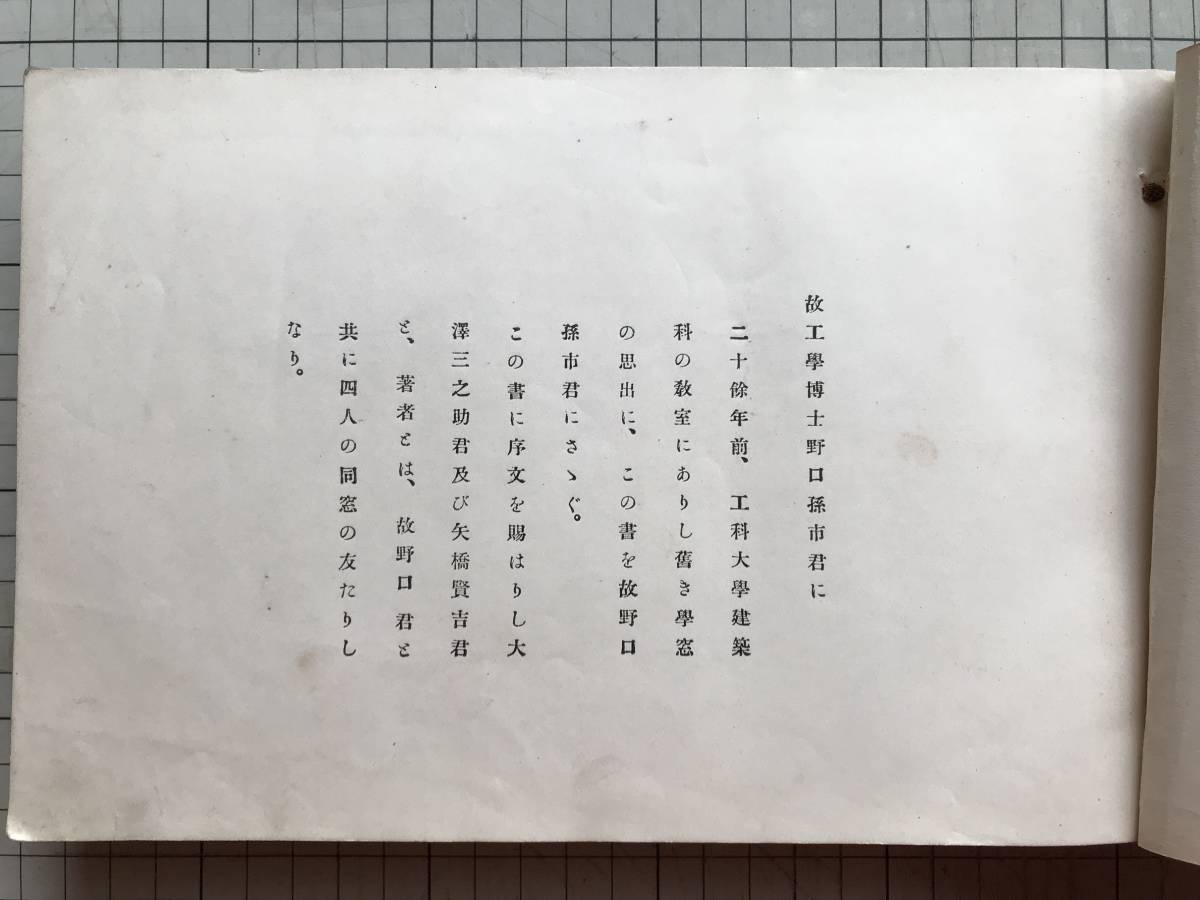 故工學博士野口孫市君に
二十餘年前、工科大學建築
科の敎室にありし舊き學窓
の思出に、この書を故野口
孫市君にさゝぐ。
この書に序文を賜はりし大
澤三之助君及び矢橋賢吉君
と、著者とは、故野口君と
共に四人の同窓の友たりし
なり。